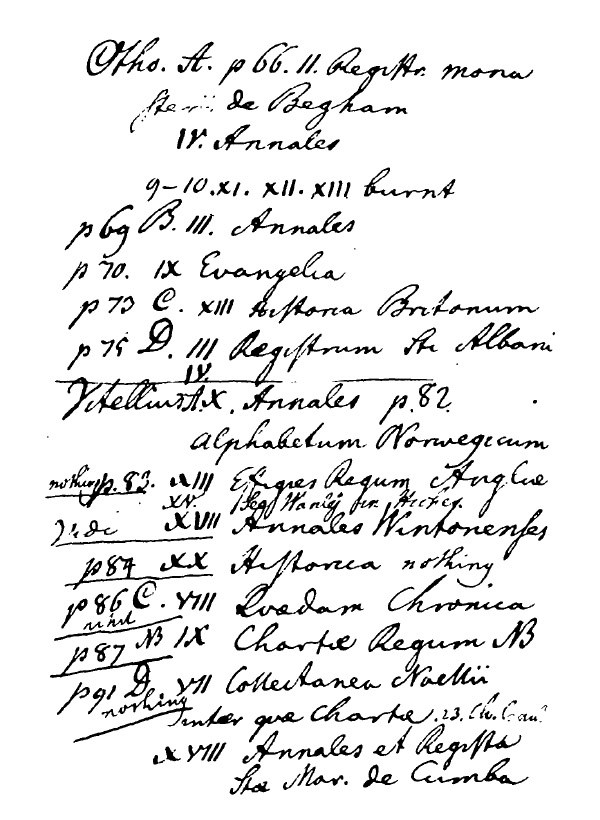 Otho. A. p 66. II. Registr. mona
sterii de Begham
IV. Annales
9-10. XI. XII. XIII burnt
p 69 B. III. Annales
p 70. IX Evangelia
p 73 C. XIII Historia Britonum
p 75 D. III Registrum Sti Albani
IV.
Vitellius A. X. Annales p. 82.
Alphabetum Norwegicum
nothing p. 83. XIII Efigies Regum Angliæ
XV.
Vide XVII Annales Wintonenses
p 84 XX Historica nothing
p 86 C. VIII Quædam Chronica
p 87 NB IX Chartæ Regum NB
p 91 D VII Collectanea Noellii
nothing inter quæ Chartæ. 23.
XVIII Annales et Regista
Stæ Mar. de Cumba